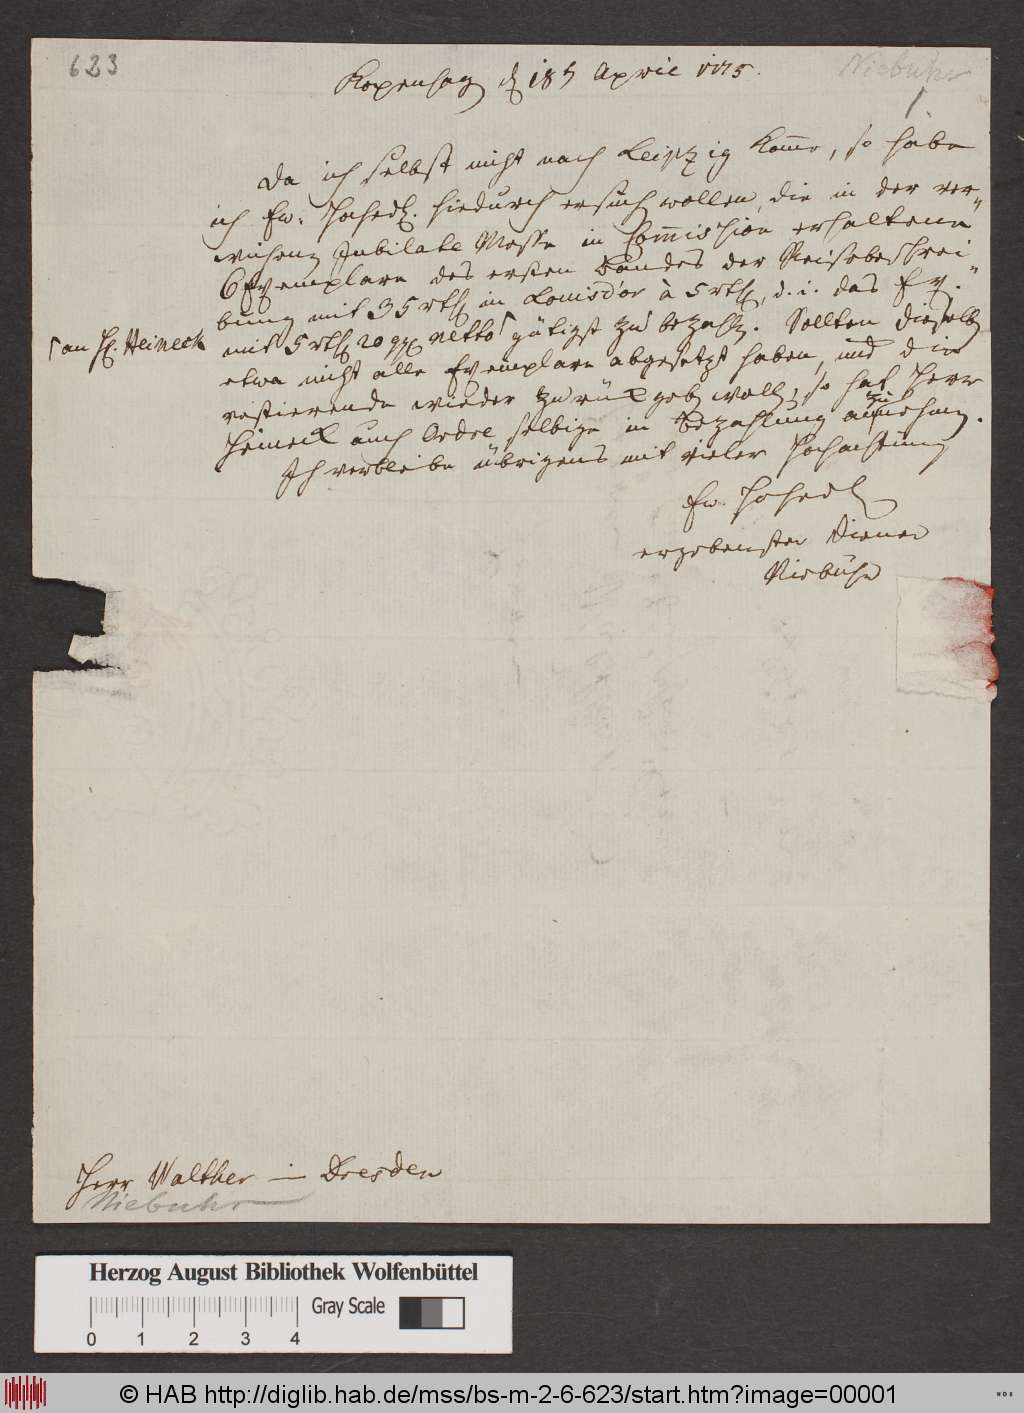 623
Niebuhr
1.
Kopenhag d 18t April 1775.
Da ich selbst nicht nach Leipzig komme, so habe
ich Ew. Hochedl. hiedurch ersuch wollen, die in der ver-
wichenen Jubilate Messe in Commission erhaltene
6 Exemplare des ersten Bandes der Reisebeschrei-
bung mit 35 rthl in Louisd'or à 5 rthl, d. i. das Ex.
⌈an H. Heineck
mit 5 rthl 20 ggl netto ⌈ gütigst zu bezahl. Sollten dieselb
etwa nicht alle Exemplare abgesetzt haben, und die
restierende wieder zurück geb woll, so hat Herr
Heineck auch Ordre selbige in Bezahlung anzunehmen.
Ich verbleibe übrigens mit vieler Hochachtung
Ew. Hochedl
ergebenster Diener
Niebuhr
Herr Walther in Dresden
Niebuhr
Herzog August Bibliothek Wolfenbüttel
Gray Scale
0 1 2 3 4
© HAB http://diglib.hab.de/mss/bs-m-2-6-623/start.htm?image=00001